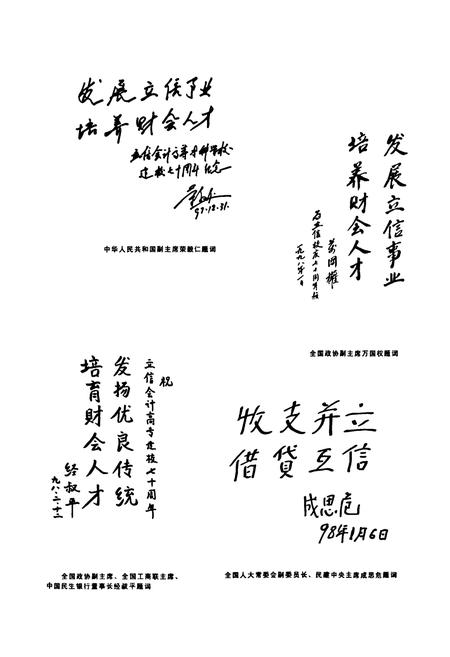 发展立信事业
培养财会人才
立信会计高等专科学校
建校七十周年纪念
97.12.31.
中华人民共和国副主席荣毅仁题词
发展立信事业
培养财会人才
万国权
一九九八年一月
全国政协副主席万国权题词
祝
立信会计高专建校七十周年
发扬优良传统
培育财会人才
经叔平
九八.二.十二
全国政协副主席、全国工商联主席、
中国民生银行董事长经叔平题词
收支并立
借贷互信
成思危
98年1月6日
全国人大常委会副委员长、民建中央主席成思危题词